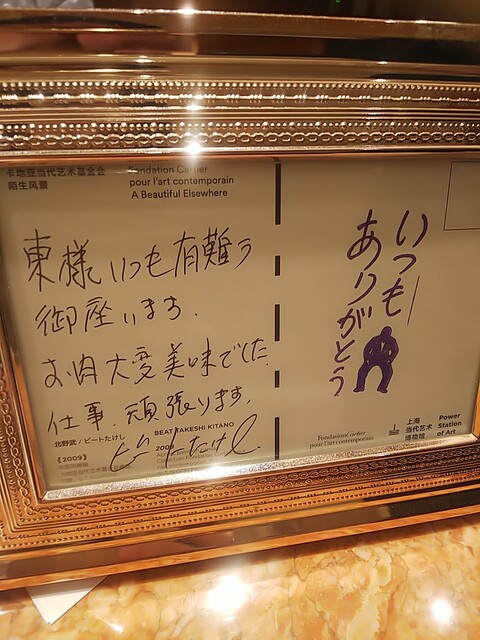 卡地亚当代艺术基金会
陌生风景
Fondation Cartier
pour l'art contemporain
A Beautiful Elsewhere
東様いつも有難う
御座います.
お肉大変美味でした
仕事.頑張ります.
北野武/ビートたけし
BEAT TAKESHI KITANO
《2009》
2009
ビートたけし
いつも
ありがとう
Fondation Cartier
pour l'art contemporain
上海
当代艺术
博物馆
Power
Station
of Art